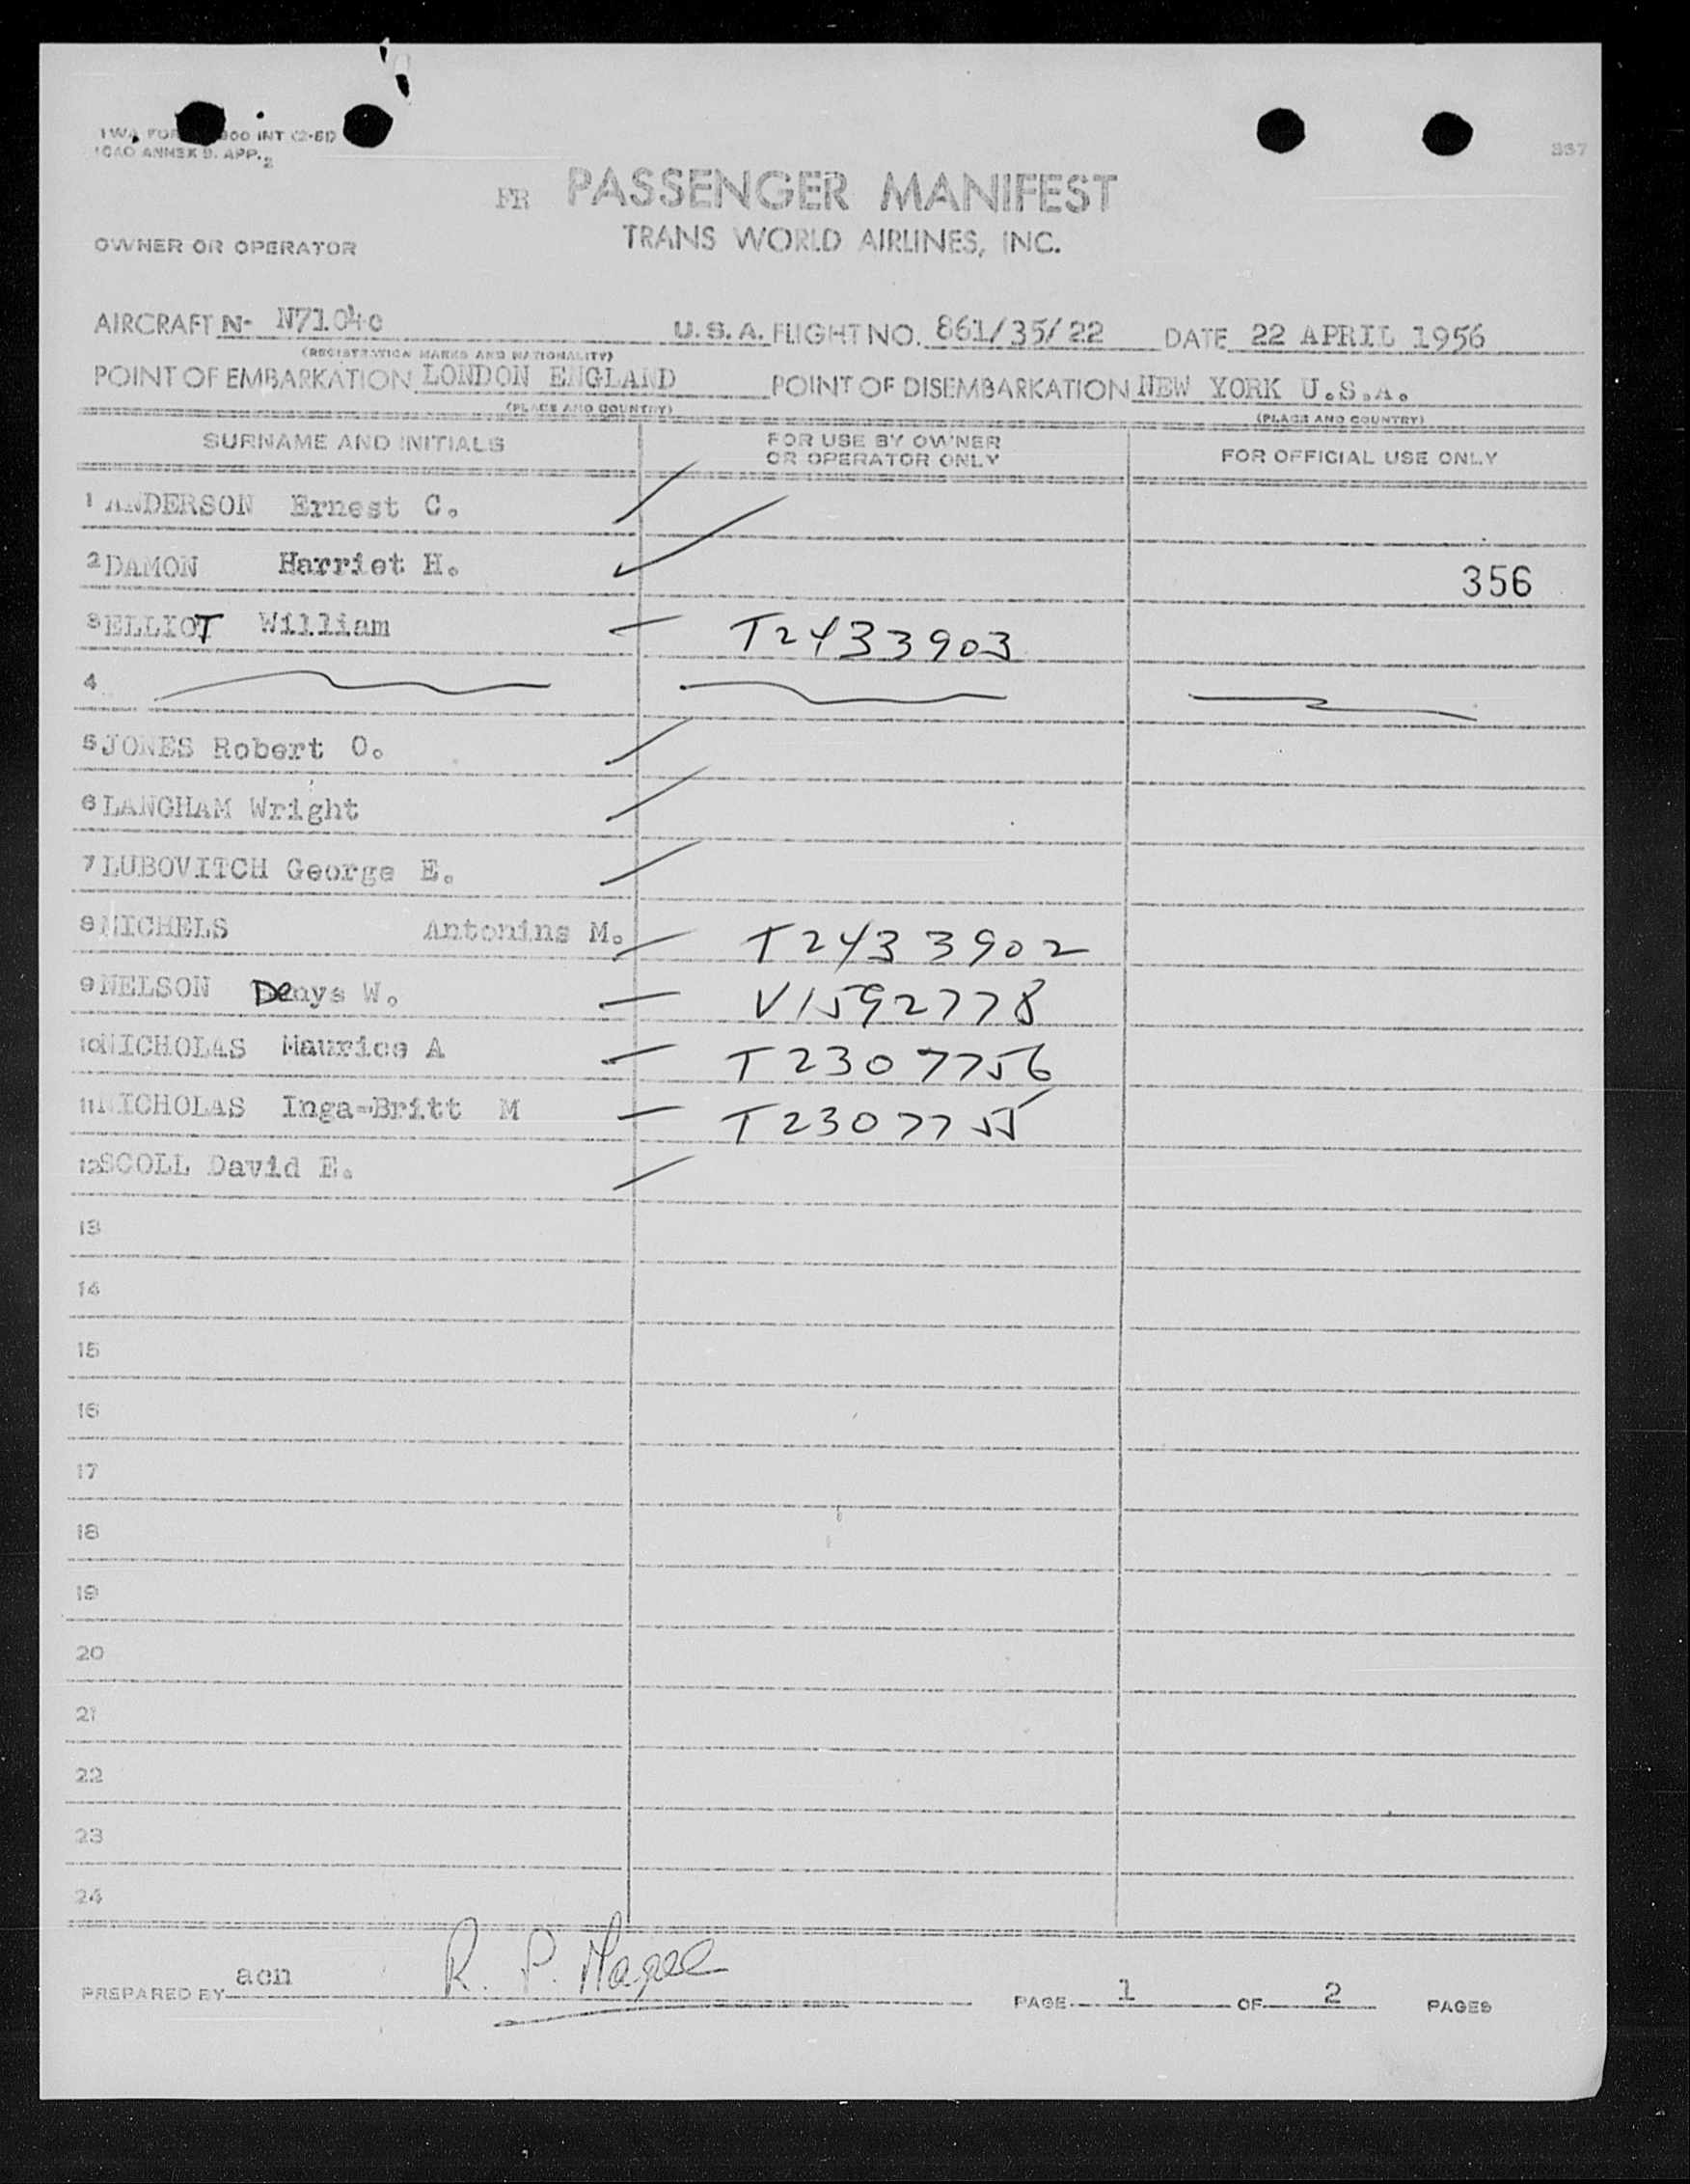 TWA FOR 900 INT (2-51)
ICAO ANNEX 9. APP. 2
337
FR PASSENGER MANIFEST
OWNER OR OPERATOR TRANS WORLD AIRLINES, INC.
AIRCRAFT N- N71040 U.S.A. FLIGHT NO. 861/35/22 DATE 22 APRIL 1956
(REGISTRATION MARKS AND NATIONALITY)
POINT OF EMBARKATION LONDON ENGLAND POINT OF DISEMBARKATION NEW YORK U.S.A.
(PLACE AND COUNTRY) (PLACE AND COUNTRY)
SURNAME AND INITIALS FOR USE BY OWNER OR OPERATOR ONLY FOR OFFICIAL USE ONLY
1 ANDERSON Ernest C.
2 DAMON Harriet H. 356
3 ELLIOT William T2433903
4
5 JONES Robert O.
6 LANGHAM Wright
7 LUBOVITCH George E.
8 MICHELS Antonins M. T2433902
9 NELSON Denys W. V1592778
10 NICHOLAS Maurice A T2307756
11 NICHOLAS Inga-Britt M T2307755
12 SCOLL David E.
13
14
15
16
17
18
19
20
21
22
23
24
PREPARED BY acn R. P. Magee PAGE 1 OF 2 PAGES